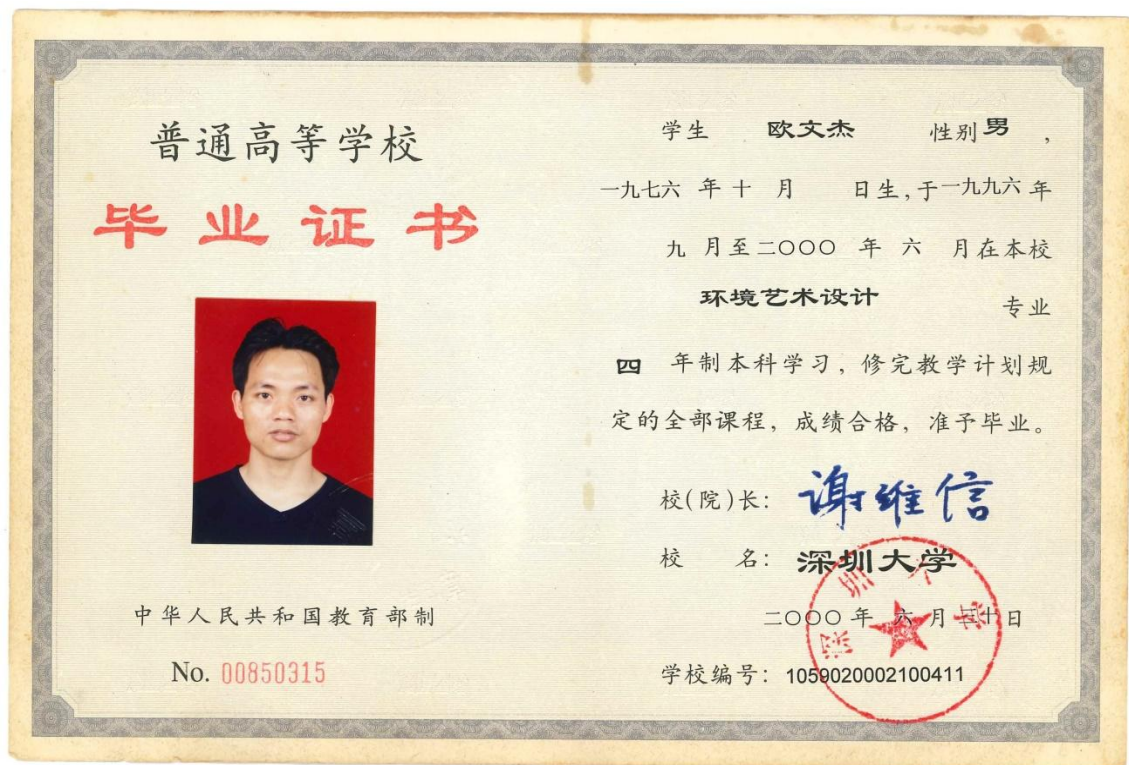 普通高等学校
毕业证书
中华人民共和国教育部制
No. 00850315
学生 欧文杰 性别 男，
一九七六 年 十 月 日生，于 一九九六 年
九 月至 二〇〇〇 年 六 月在本校
环境艺术设计 专业
四 年制本科学习，修完教学计划规
定的全部课程，成绩合格，准予毕业。
校(院)长： 谢维信
校 名： 深圳大学
二〇〇〇 年 六 月 三十 日
学校编号： 1059020002100411
深圳大学